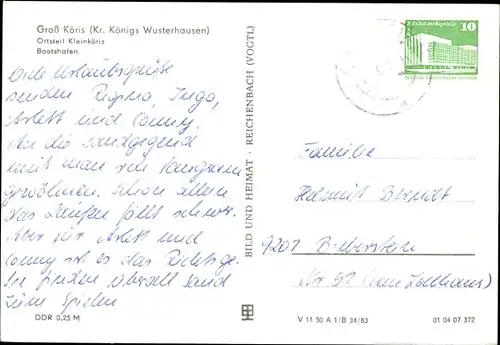 Groß Köris (Kr. Königs Wusterhausen)
Ortsteil Kleinköris
Bootshafen
Viele Urlaubsgrüße
senden Regina, Ingo,
Arlett und Conny.
An die Sandgegend
muß man sich langsam
gewöhnen. Schon allein
das Laufen fällt schwer.
Aber für Arlett und
Conny ist es das Richtige.
Sie finden überall Sand
zum Spielen
DDR 0,25 M
BILD UND HEIMAT · REICHENBACH (VOGTL)
10
Familie
Helmut Berndt
9201 Bieberstein
Nr. 51
V 11 50 A 1/B 34/83
01 04 07 372